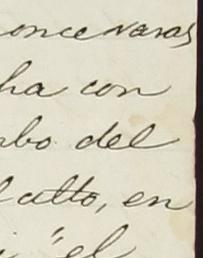 once varas
ha con
bo del
l alto, en
"el